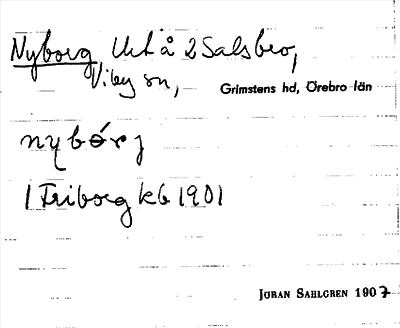 Nyborg Utå 2 Salsbro,
Viby sn, Grimstens hd, Örebro län
nybórj
1 Friborg kb 1901
JÖRAN SAHLGREN 1907